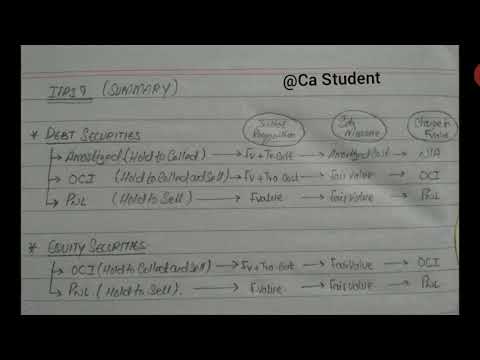 @Ca Student
IFRS 9 (SUMMARY)
Initial Recognition
Sub, Measure
Change in Fvalue
* DEBT SECURITIES
→ Amortized (Hold to Collect) → Fv + Tra Cost → Amortized Cost → N/A
→ OCI (Hold to Collect and Sell) → Fv + Tra Cost → Fair Value → OCI
→ PNL (Hold to Sell) → Fvalue → Fair Value → PNL
* EQUITY SECURITIES
→ OCI (Hold to Collect and Sell) → Fv + Tra Cost → Fair Value → OCI
→ PNL (Hold to Sell). → Fvalue. → Fair value → PNL